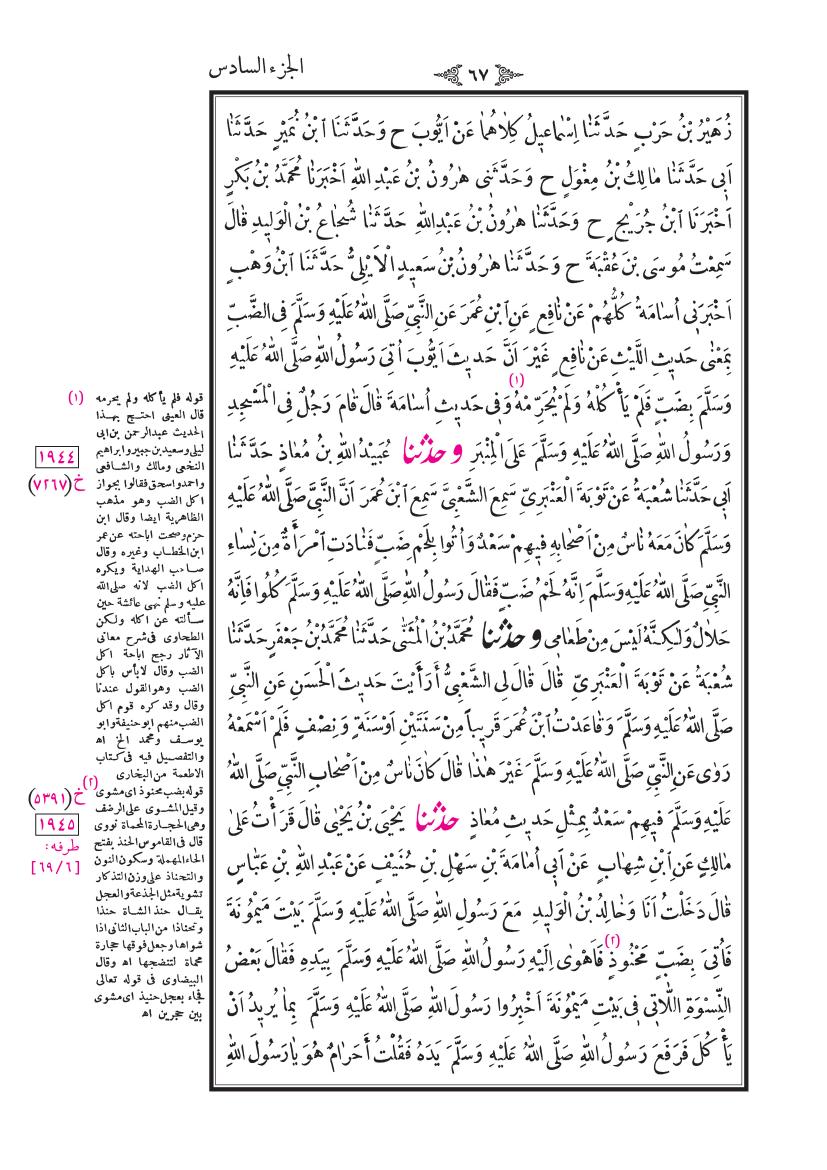 ٦٧
الجزء السادس
زُهَيْرُ بْنُ حَرْبٍ حَدَّثَنَا اِسْمَاعِيلُ كِلَاهُمَا عَنْ اَيُّوبَ ح وَحَدَّثَنَا ابْنُ نُمَيْرٍ حَدَّثَنَا
اَبِى حَدَّثَنَا مَالِكُ بْنُ مِغْوَلٍ ح وَحَدَّثَنِى هٰرُونُ بْنُ عَبْدِ اللهِ اَخْبَرَنَا مُحَمَّدُ بْنُ بَكْرٍ
اَخْبَرَنَا ابْنُ جُرَيْجٍ ح وَحَدَّثَنَا هٰرُونُ بْنُ عَبْدِاللهِ حَدَّثَنَا شُجَاعُ بْنُ الْوَلِيدِ قَالَ
سَمِعْتُ مُوسَى بْنَ عُقْبَةَ ح وَحَدَّثَنَا هٰرُونُ بْنُ سَعِيدٍ الْاَيْلِىُّ حَدَّثَنَا ابْنُ وَهْبٍ
اَخْبَرَنِى اُسَامَةُ كُلُّهُمْ عَنْ نَافِعٍ عَنِ ابْنِ عُمَرَ عَنِ النَّبِىِّ صَلَّى اللهُ عَلَيْهِ وَسَلَّمَ فِى الضَّبِّ
بِمَعْنٰى حَدِيثِ اللَّيْثِ عَنْ نَافِعٍ غَيْرَ اَنَّ حَدِيثَ اَيُّوبَ اُتِىَ رَسُولُ اللهِ صَلَّى اللهُ عَلَيْهِ
وَسَلَّمَ بِضَبٍّ فَلَمْ يَأْكُلْهُ وَلَمْ يُحَرِّمْهُ (١) وَفِى حَدِيثِ اُسَامَةَ قَالَ قَامَ رَجُلٌ فِى الْمَسْجِدِ
وَرَسُولُ اللهِ صَلَّى اللهُ عَلَيْهِ وَسَلَّمَ عَلَى الْمِنْبَرِ وحدثنا عُبَيْدُ اللهِ بْنُ مُعَاذٍ حَدَّثَنَا
اَبِى حَدَّثَنَا شُعْبَةُ عَنْ تَوْبَةَ الْعَنْبَرِىِّ سَمِعَ الشَّعْبِىَّ سَمِعَ ابْنَ عُمَرَ اَنَّ النَّبِىَّ صَلَّى اللهُ عَلَيْهِ
وَسَلَّمَ كَانَ مَعَهُ نَاسٌ مِنْ اَصْحَابِهِ فِيهِمْ سَعْدٌ وَاُتُوا بِلَحْمِ ضَبٍّ فَنَادَتِ امْرَأَةٌ مِنْ نِسَاءِ
النَّبِىِّ صَلَّى اللهُ عَلَيْهِ وَسَلَّمَ اِنَّهُ لَحْمُ ضَبٍّ فَقَالَ رَسُولُ اللهِ صَلَّى اللهُ عَلَيْهِ وَسَلَّمَ كُلُوا فَاِنَّهُ
حَلَالٌ وَلٰكِنَّهُ لَيْسَ مِنْ طَعَامِى وحدثنا مُحَمَّدُ بْنُ الْمُثَنّٰى حَدَّثَنَا مُحَمَّدُ بْنُ جَعْفَرٍ حَدَّثَنَا
شُعْبَةُ عَنْ تَوْبَةَ الْعَنْبَرِىِّ قَالَ قَالَ لِى الشَّعْبِىُّ أَرَأَيْتَ حَدِيثَ الْحَسَنِ عَنِ النَّبِىِّ
صَلَّى اللهُ عَلَيْهِ وَسَلَّمَ وَقَاعَدْتُ ابْنَ عُمَرَ قَرِيباً مِنْ سَنَتَيْنِ اَوْسَنَةٍ وَنِصْفٍ فَلَمْ اَسْمَعْهُ
رَوٰى عَنِ النَّبِىِّ صَلَّى اللهُ عَلَيْهِ وَسَلَّمَ غَيْرَ هٰذَا قَالَ كَانَ نَاسٌ مِنْ اَصْحَابِ النَّبِىِّ صَلَّى اللهُ
عَلَيْهِ وَسَلَّمَ فِيهِمْ سَعْدٌ بِمِثْلِ حَدِيثِ مُعَاذٍ حدثنا يَحْيَى بْنُ يَحْيٰى قَالَ قَرَأْتُ عَلٰى
مَالِكٍ عَنِ ابْنِ شِهَابٍ عَنْ اَبِى اُمَامَةَ بْنِ سَهْلِ بْنِ حُنَيْفٍ عَنْ عَبْدِ اللهِ بْنِ عَبَّاسٍ
قَالَ دَخَلْتُ اَنَا وَخَالِدُ بْنُ الْوَلِيدِ مَعَ رَسُولِ اللهِ صَلَّى اللهُ عَلَيْهِ وَسَلَّمَ بَيْتَ مَيْمُونَةَ
فَاُتِىَ بِضَبٍّ مَحْنُوذٍ (٢) فَاَهْوٰى اِلَيْهِ رَسُولُ اللهِ صَلَّى اللهُ عَلَيْهِ وَسَلَّمَ بِيَدِهِ فَقَالَ بَعْضُ
النِّسْوَةِ اللَّاتِى فِى بَيْتِ مَيْمُونَةَ اَخْبِرُوا رَسُولَ اللهِ صَلَّى اللهُ عَلَيْهِ وَسَلَّمَ بِمَا يُرِيدُ اَنْ
يَأْكُلَ فَرَفَعَ رَسُولُ اللهِ صَلَّى اللهُ عَلَيْهِ وَسَلَّمَ يَدَهُ فَقُلْتُ أَحَرَامٌ هُوَ يَارَسُولَ اللهِ
(١) قوله فلم يأكله ولم يحرمه
قال العينى احتج بهذا
الحديث عبدالرحمن بن ابى
ليلى وسعيد بن جبير وابراهيم
النخعى ومالك والشافعى
واحمد واسحق فقالوا بجواز
اكل الضب وهو مذهب
الظاهرية ايضا وقال ابن
حزم وصحت اباحته عن عمر
ابن الخطاب وغيره وقال
صاحب الهداية ويكره
اكل الضب لانه صلى الله
عليه وسلم نهى عائشة حين
سألته عن اكله ولكن
الطحاوى فى شرح معانى
الآثار رجح اباحة اكل
الضب وقال لا بأس باكل
الضب وهو القول عندنا
وقال وقد كره قوم اكل
الضب منهم ابو حنيفة وابو
يوسف ومحمد الخ اه
والتفصيل فيه فى كتاب
الاطعمة من البخارى
(٢) قوله بضب محنوذ اى مشوى
وقيل المشوى على الرضف
وهى الحجارة المحماة نووى
قال فى القاموس الحنذ بفتح
الحاء المهملة وسكون النون
والتحناذ على وزن التذكار
تشوية مثل الجذعة والعجل
يقال حنذ الشاة حنذا
وتحناذا من الباب الثانى اذا
شواها وجعل فوقها حجارة
محماة لتنضجها اه وقال
البيضاوى فى قوله تعالى
فجاء بعجل حنيذ اى مشوى
بين حجرين اه
١٩٤٤
خ (٧٢٦٧)
خ (٥٣٩١)
١٩٤٥
طرفه:
[٦٩/٦]